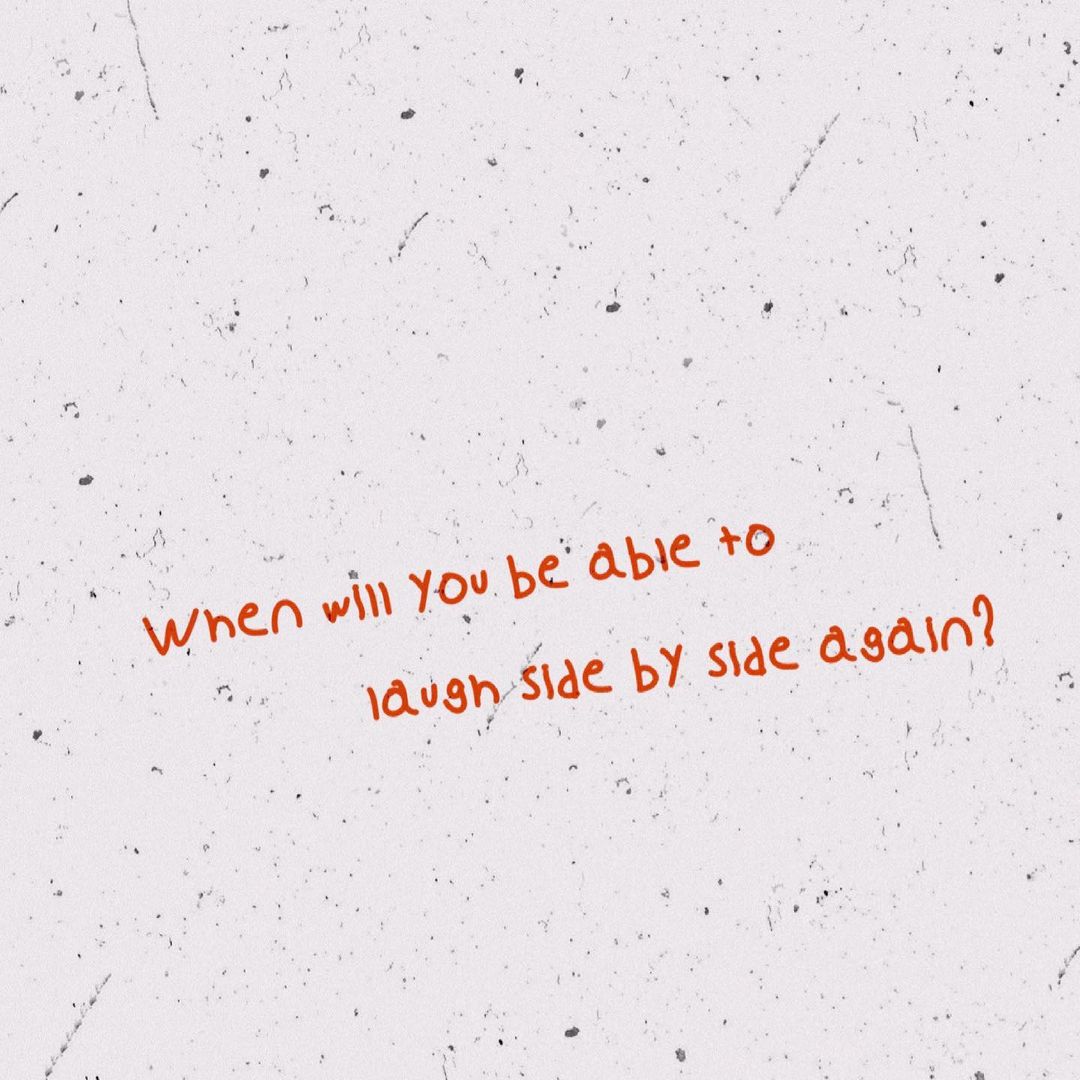 When will you be able to
laugh side by side again?